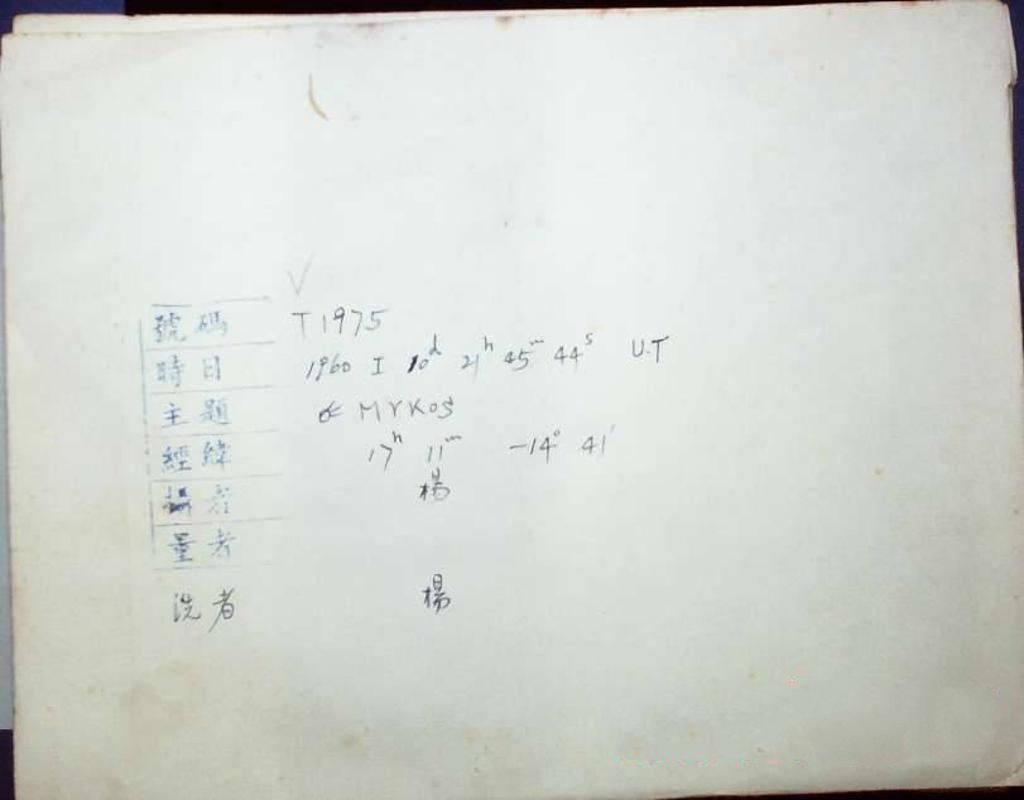 號碼 T1975
時日 1960 I 10d 21h 45m 44s U.T
主題 MYKOS
經緯 17h 11m -14° 41'
攝者 楊
量者
洗者 楊